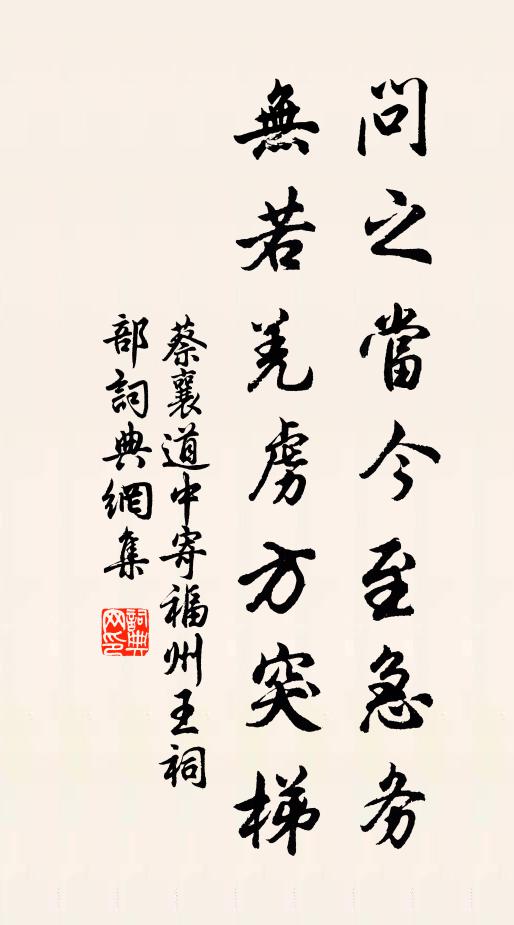 問之當今至急务
無若羌虜方突梯
蔡襄道中寄福州王祠
部詞典網集
詞典
网印